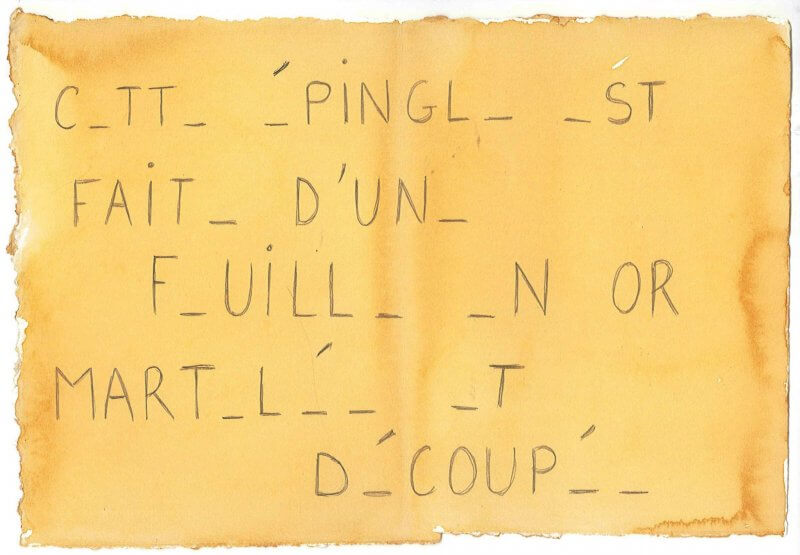 C_TT_ ´_PINGL_ _ST
FAIT_ D'UN_
F_UILL_ _N OR
MART_L´_ _ _T
D´_COUP´_ _